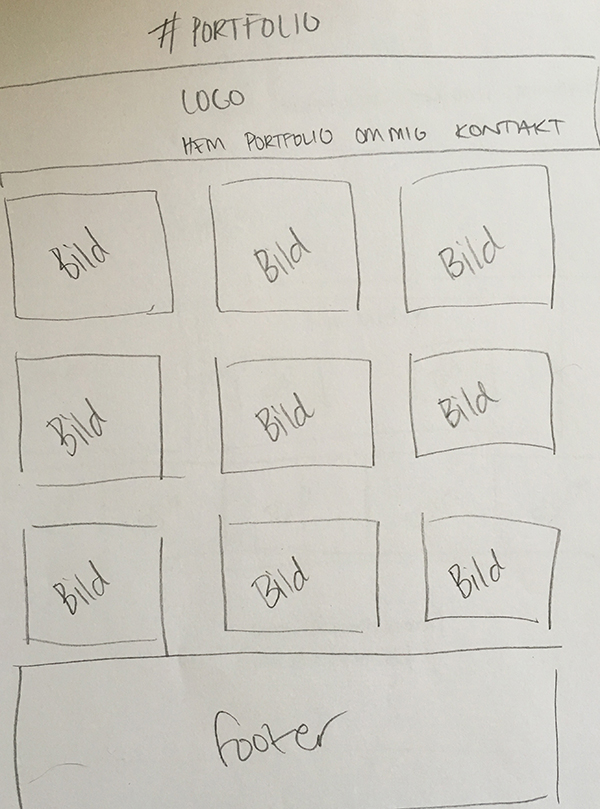 # PORTFOLIO
LOGO
HEM PORTFOLIO OM MIG KONTAKT
Bild Bild Bild
Bild Bild Bild
Bild Bild Bild
footer